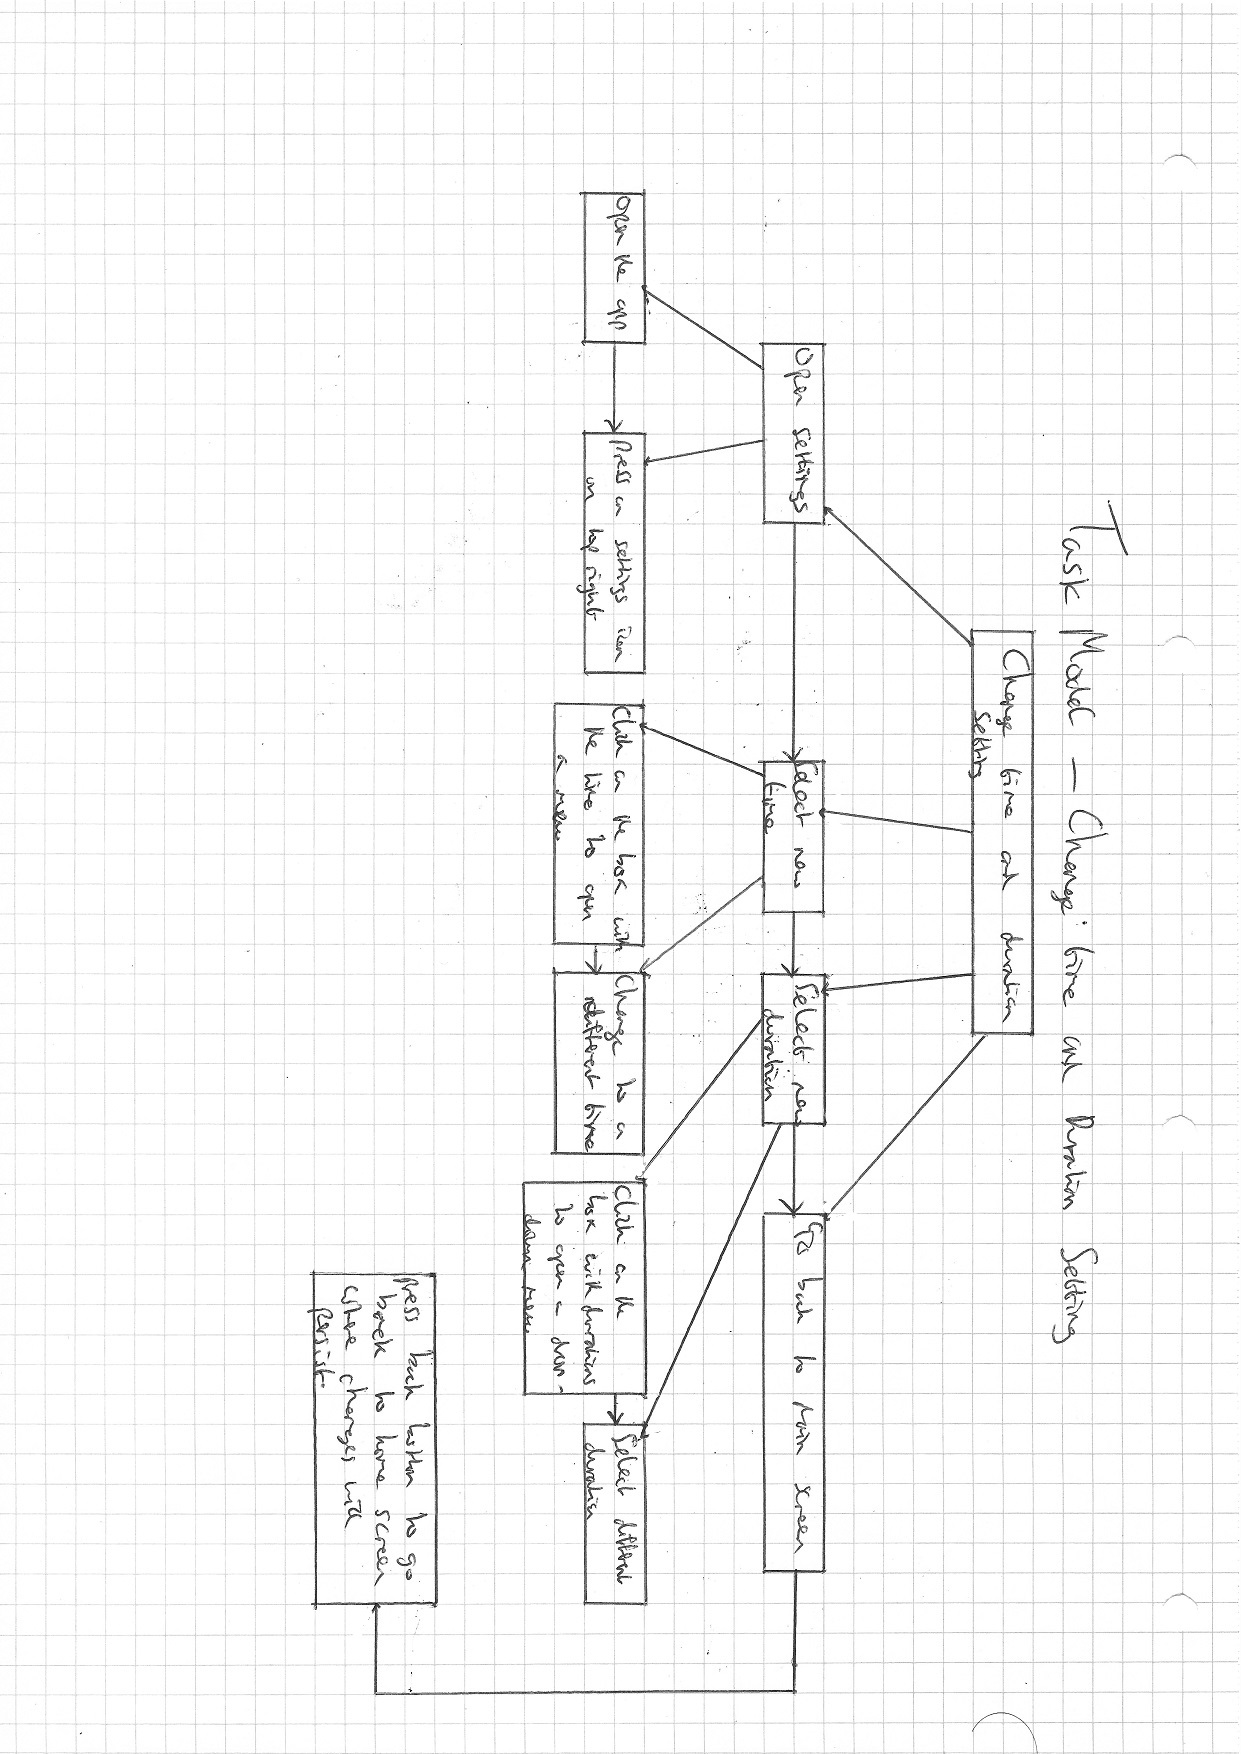 Task Model — Change time and Duration Setting
Change time and duration
setting
Open settings
Select new
time
Select new
duration
Go back to main screen
Open the app
Press on settings icon
on top right
Click on the box with
the time to open
a menu
Change to a
different time
Click on the
box with durations
to open a drop-
down menu
Select different
duration
Press back button to go
back to home screen
where changes will
persist.